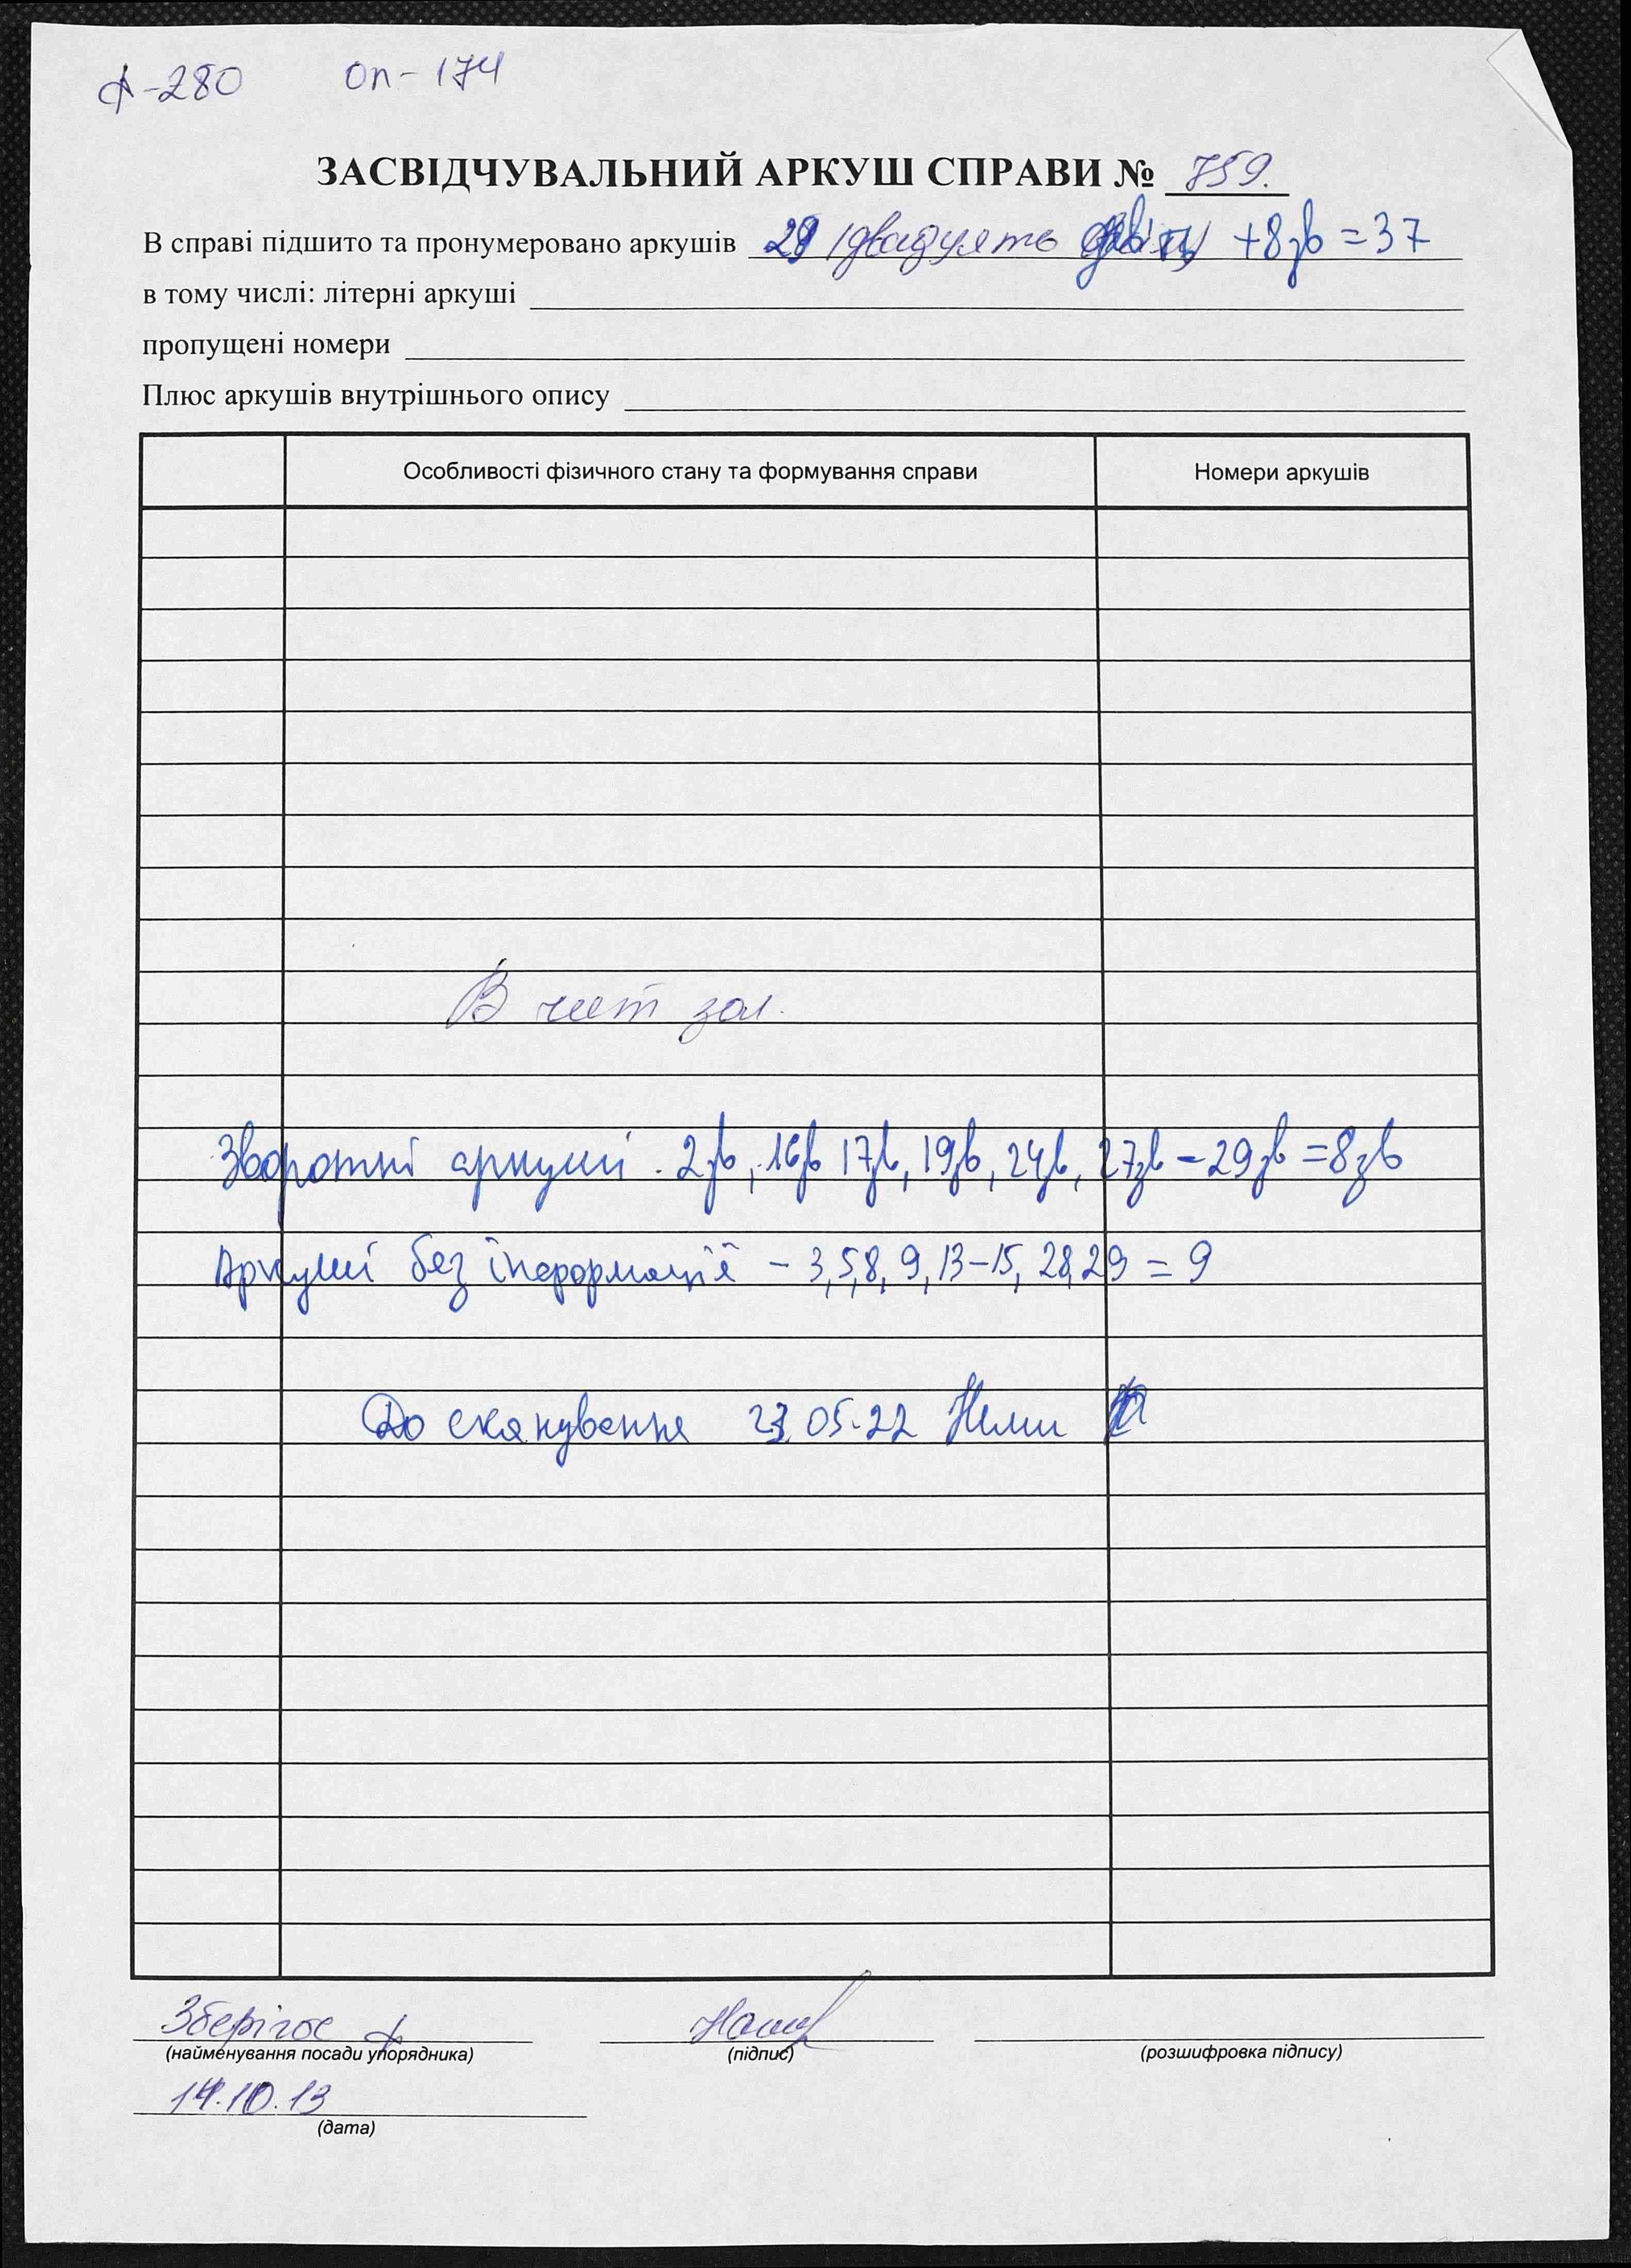 ф-280 оп-174
ЗАСВІДЧУВАЛЬНИЙ АРКУШ СПРАВИ № 759.
В справі підшито та пронумеровано аркушів 29 (двадцять +8зв =37
в тому числі: літерні аркуші
пропущені номери
Плюс аркушів внутрішнього опису
Особливості фізичного стану та формування справи Номери аркушів
В чит зал.
Зворотні аркуші. 2зв, 16зв 17зв, 19зв, 24зв, 27зв - 29зв =8зв
Аркуші без інформації - 3,5,8, 9, 13-15, 28,29 = 9
До сканування 23.05.22
Зберігає ф
(найменування посади упорядника) (підпис) (розшифровка підпису)
14.10.13
(дата)